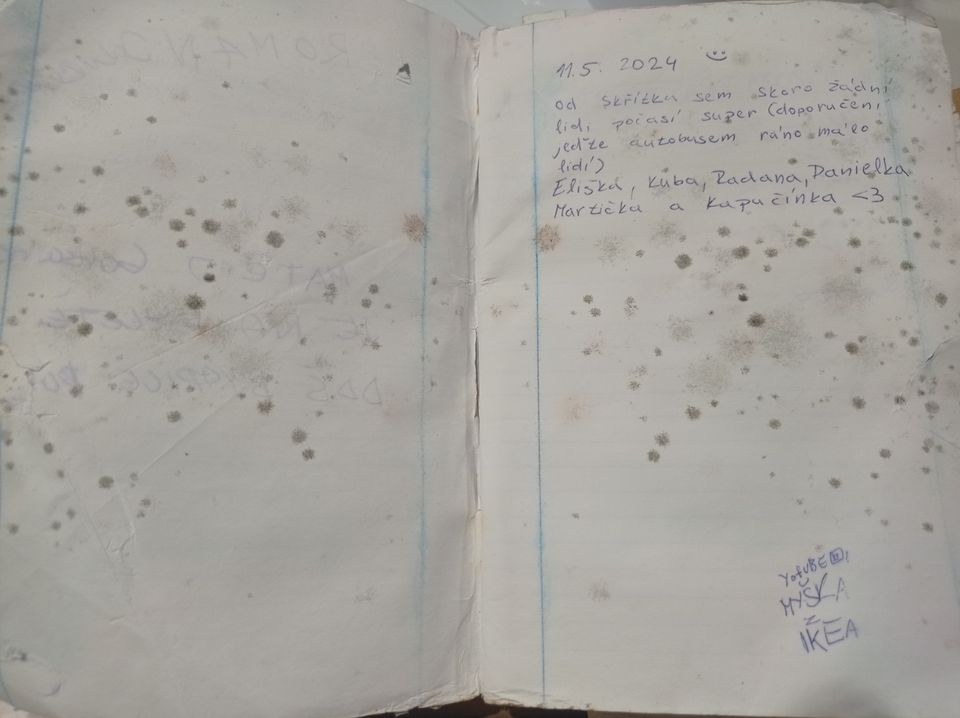 11.5. 2024
od skřítka sem skoro žádní
lidi počasí super (doporučeni
jeďte autobusem ráno málo
lidí)
Eliška, Kuba, Radana, Danielka
Martička a Kapučínka <3
YoTUBE
MYŠKA
Z
IKEA